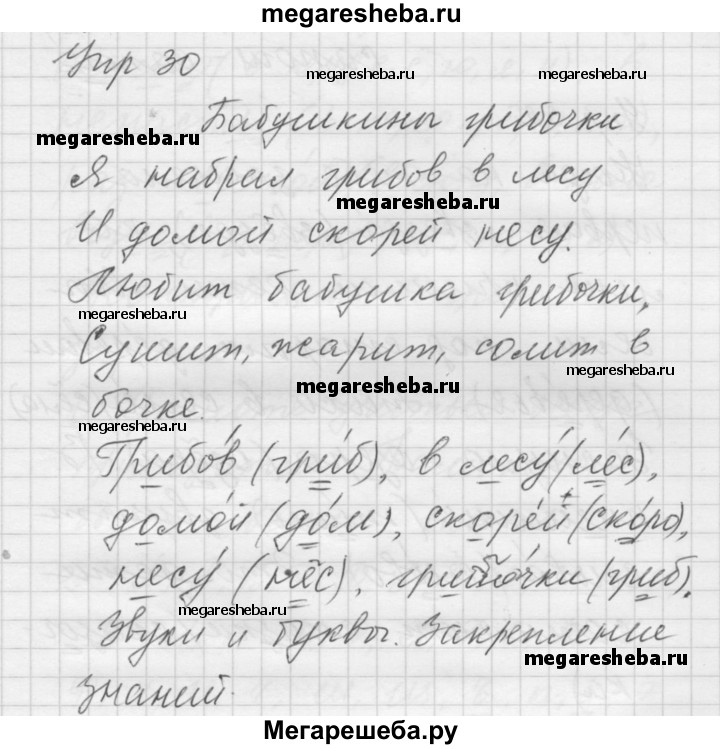 megaresheba.ru
Упр 30
megaresheba.ru
megaresheba.ru
Бабушкины грибочки
megaresheba.ru
Я набрал грибов в лесу
megaresheba.ru
И домой скорей несу.
Любит бабушка грибочки,
megaresheba.ru
Сушит, жарит, солит в
megaresheba.ru
megaresheba.ru
бочке.
megaresheba.ru
Грибо́в (гри́б), в лесу́ (ле́с),
домо́й (до́м), скоре́й (ско́ро),
несу́ (нёс), грибо́чки (гриб).
megaresheba.ru
Звуки и буквы. Закрепление
megaresheba.ru
знаний.
Мегарешеба.ру